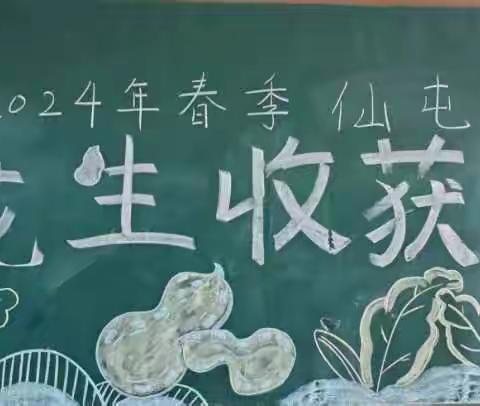 2024年春季仙屯
花生收获